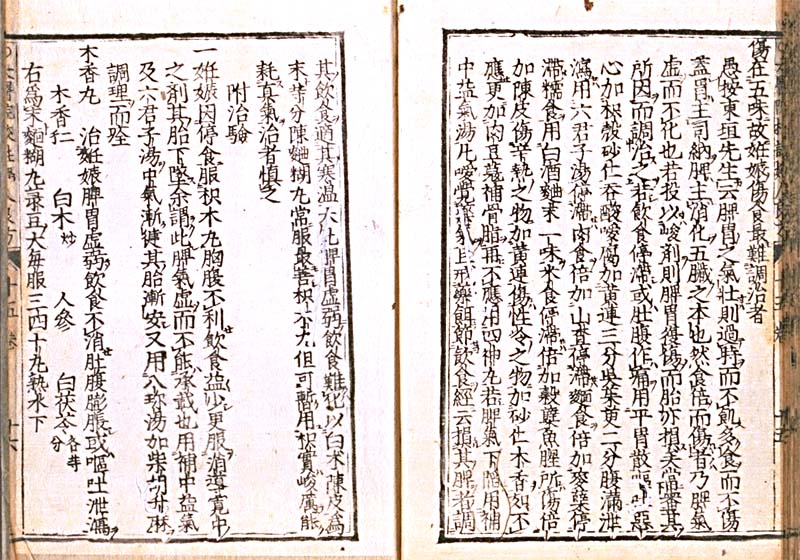 傷在五味故妊娠傷食最難調治者
愚按東垣先生云脾胃之氣壯則過時而不飢多食而不傷
蓋胃主司納脾主消化五臟之本也然食倍而傷者乃脾氣
虛而不化也若投以峻劑則脾胃復傷而胎亦損矣當審其
所因而調治之若飲食停滯或肚腹作痛用平胃散嘔吐惡
心加枳殼砂仁吞酸噯腐加黃連三分吳茱萸二分腹滿泄
瀉用六君子湯停滯肉食倍加山查停滯麵食倍加麥糵停
滯糯食用白酒麯末一味米食停滯倍加穀糵魚腥所傷倍
加陳皮傷辛熱之物加黃連傷性冷之物加砂仁木香如不
應更加肉豆蔻補骨脂再不應用四神丸若脾氣下陷用補
中益氣湯凡噯覺藥氣且戒藥餌節飲食經云損其脾者調
其飲食適其寒溫大凡脾胃虛弱飲食難化以白朮陳皮為
末等分陳麯糊丸常服最善枳朮丸但可暫用枳實峻厲能
耗真氣治者慎之
附治驗
一妊娠因停食服枳朮丸胸腹不利飲食益少更服消導寬中
之劑其胎下墜余謂此脾氣虛而不能承載也用補中益氣
及六君子湯中氣漸健其胎漸安又用八珍湯加柴胡升麻
調理而痊
木香丸 治妊娠脾胃虛弱飲食不消肚腹膨脹或嘔吐泄瀉
木香仁 白朮炒 人參 白茯苓各等分
右為末麵糊丸菉豆大每服三四十丸熱水下